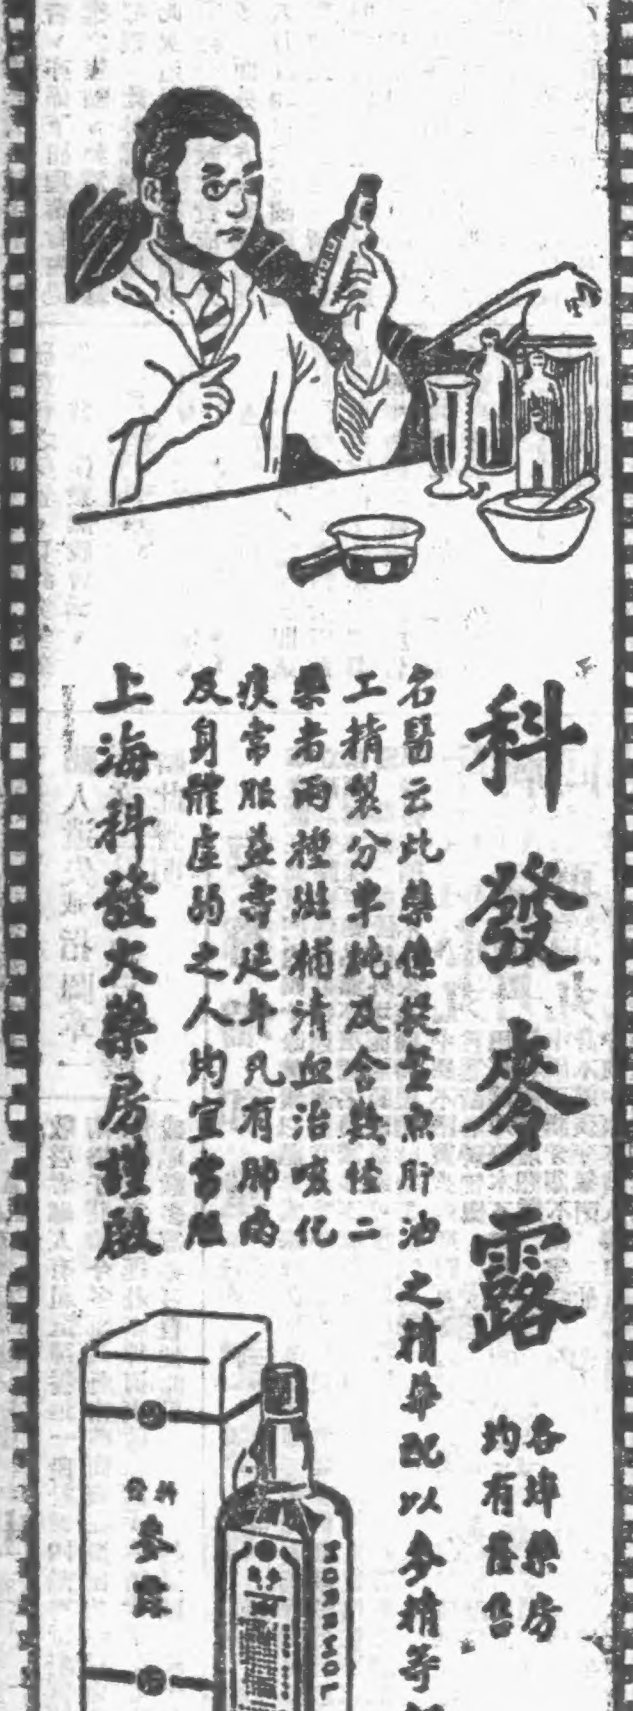 科發麥露
各埠藥房
均有售
名醫云此藥係提魚肝油之精華配以麥精等
工精製分單純及含二
藥者兩種滋補清血治咳化
痰常服益壽延年凡有肺病
及身體虛弱之人均宜常服
上海科發大藥房謹啟
科發
麥露
MORRHOL